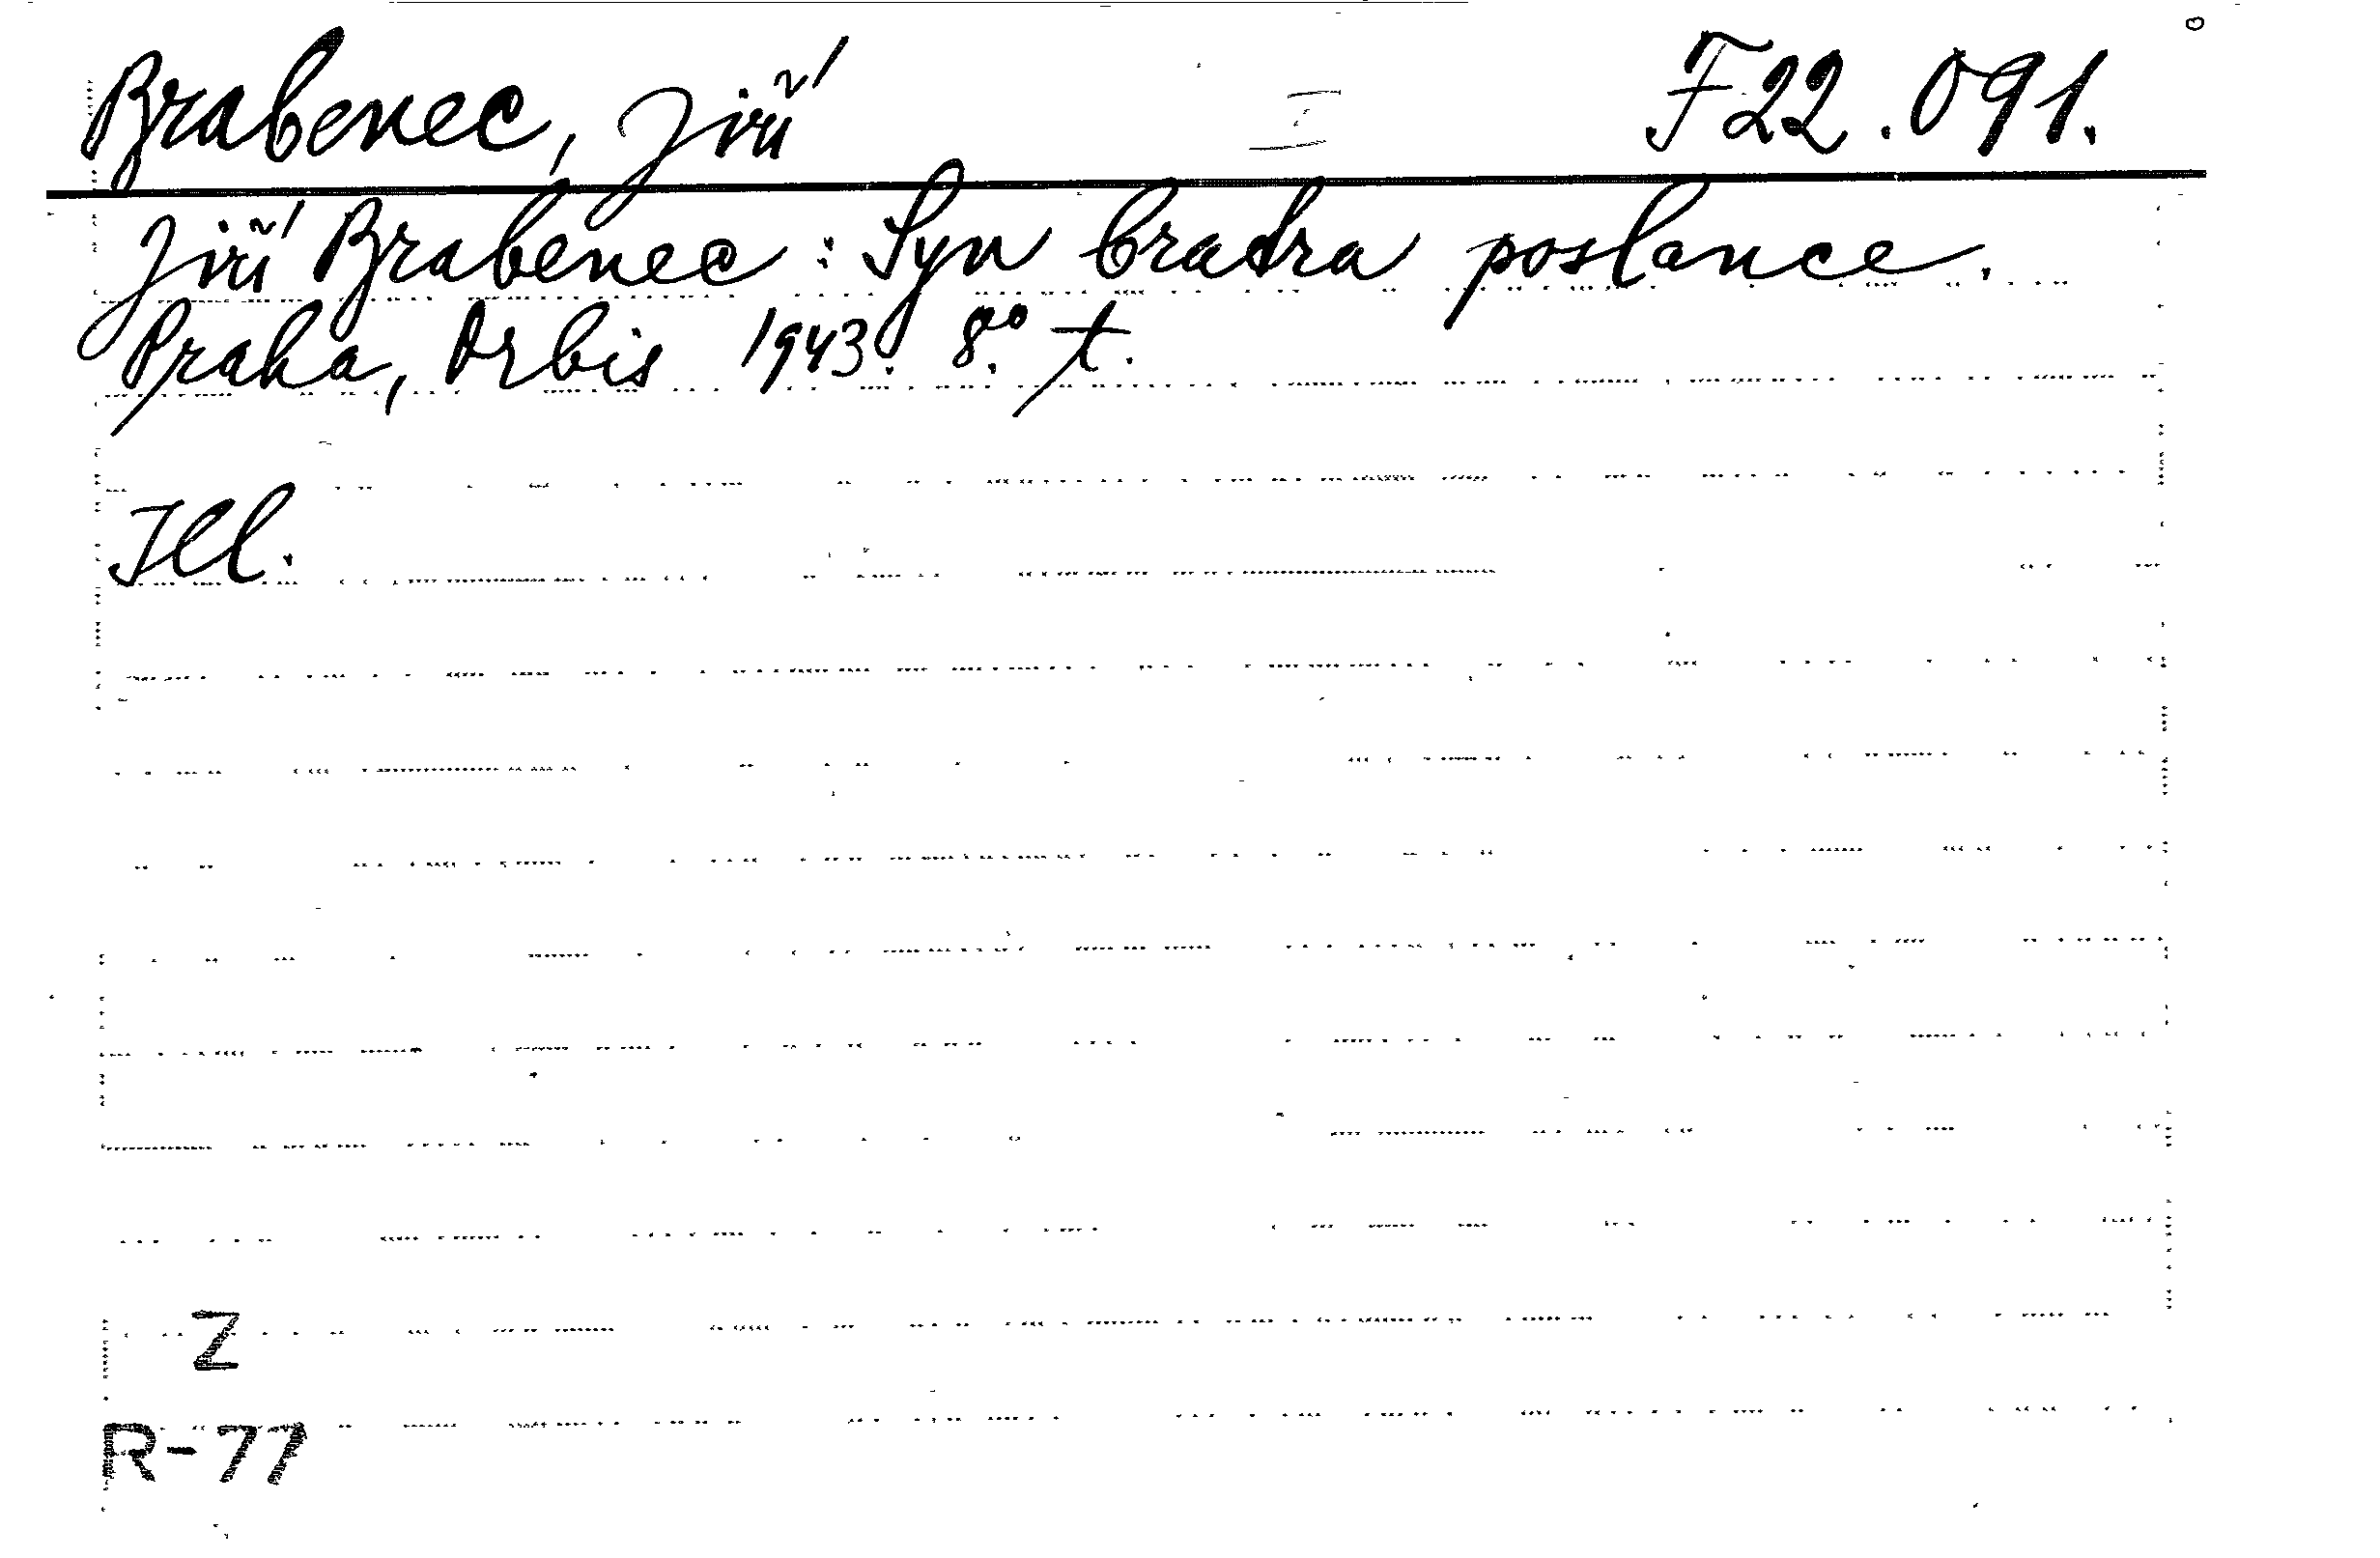 Brabenec, Jiří I F 22.091.
Jiří Brabenec: Syn bratra poslance.
Praha, Orbis 1943. 8.° t.
Ill.
Z
R-77